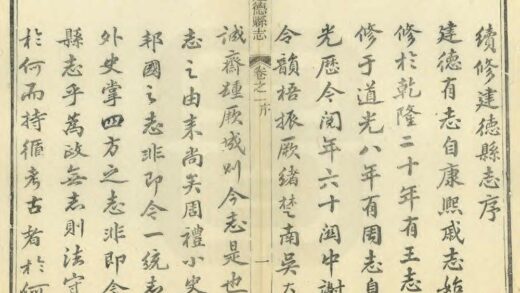 續修建德縣志序
建德有志自康熙戚志始
修於乾隆二十年有王志
修于道光八年有周志自
光歷今閱年六十閩中謝
令韻梧振厥緒楚南吳
德縣志
卷之一序
一
誠齋踵厥成則今志是也
志之由来尚矣周禮小史
邦國之志非即今一統志
外史掌四方之志非即今
縣志乎為政無志則法守
於何而持循考古者於何